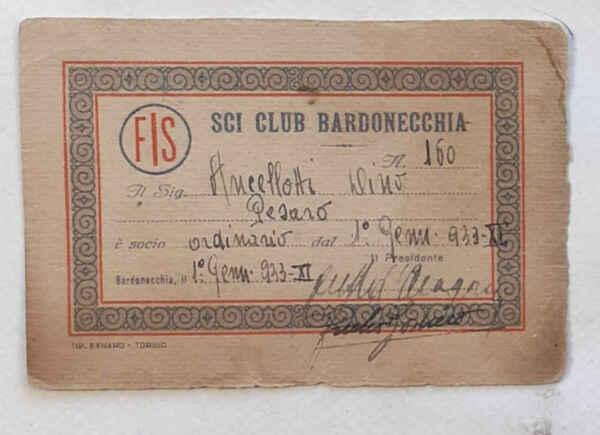 FIS
SCI CLUB BARDONECCHIA
N. 160
Il Sig. Ancellotti Dino
Pesaro
è socio ordinario dal 1º Genn. 933-XI
Il Presidente
Bardonecchia, li 1º Genn. 933-XI
TIP. - TORINO